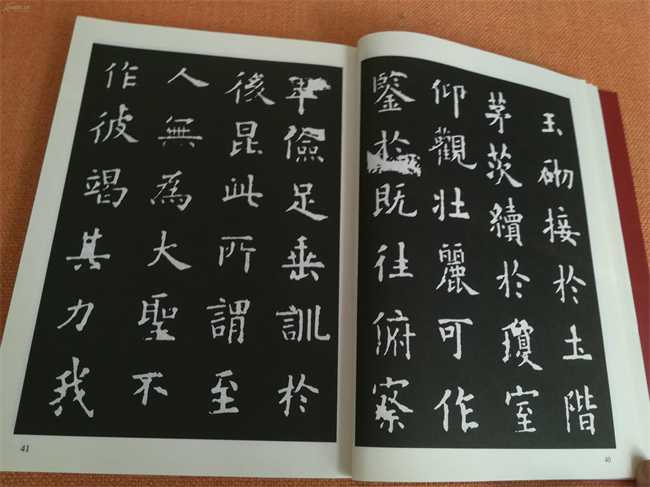 玉砌接於土階
茅茨續於瓊室
仰觀壯麗可作
鑒於既往俯察
40
卑儉足垂訓於
後昆此所謂至
人無為大聖不
作彼竭其力我
41